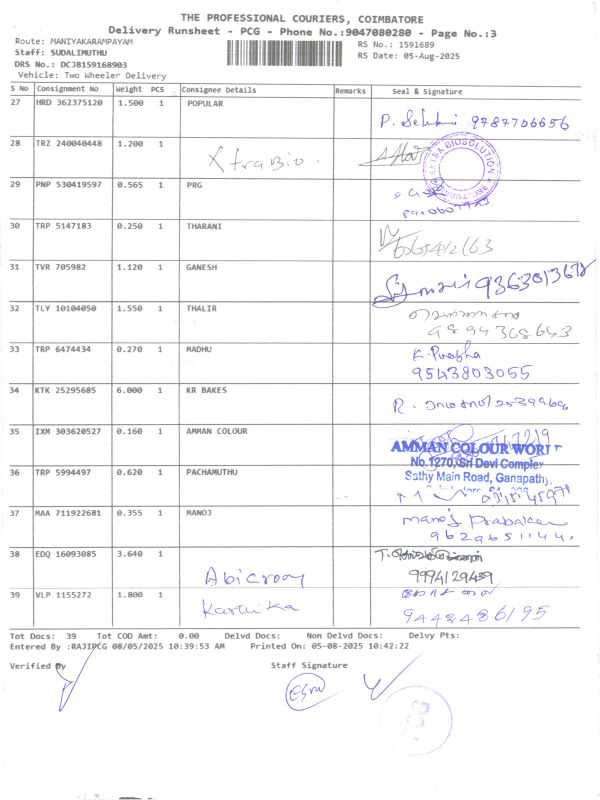 THE PROFESSIONAL COURIERS, COIMBATORE
Delivery Runsheet - PCG - Phone No.:9047080280 - Page No.:3
Route: MANIYAKARAMPAYAM RS No.: 1591689
Staff: SUDALIMUTHU RS Date: 05-Aug-2025
DRS No.: DCJB159168903
Vehicle: Two Wheeler Delivery
S No Consignment No Weight PCS Consignee Details Remarks Seal & Signature
27 HRD 362375120 1.500 1 POPULAR
9787706656
28 TRZ 240040448 1.200 1 XtraBio
XTRA BIOSOLUTION
29 PNP 530419597 0.565 1 PRG
30 TRP 5147183 0.250 1 THARANI
31 TVR 705982 1.120 1 GANESH
32 TLY 10104050 1.550 1 THALIR
9894368643
33 TRP 6474434 0.270 1 MADHU K. Prabha
9543803055
34 KTK 25295685 6.000 1 KR BAKES
35 IXM 303620527 0.160 1 AMMAN COLOUR
AMMAN COLOUR WORL
No.1270, Sri Devi Complex
Sathy Main Road, Ganapathy,
36 TRP 5994497 0.620 1 PACHAMUTHU
37 MAA 711922681 0.355 1 MANOJ Manoj Prabakar
9629651144.
38 EDQ 16093085 3.640 1
Abicroy 9994129459
39 VLP 1155272 1.800 1 Karthika
9442486195
Tot Docs: 39 Tot COD Amt: 0.00 Delvd Docs: Non Delvd Docs: Delvy Pts:
Entered By :RAJIPCG 08/05/2025 10:39:53 AM Printed On: 05-08-2025 10:42:22
Verified By Staff Signature